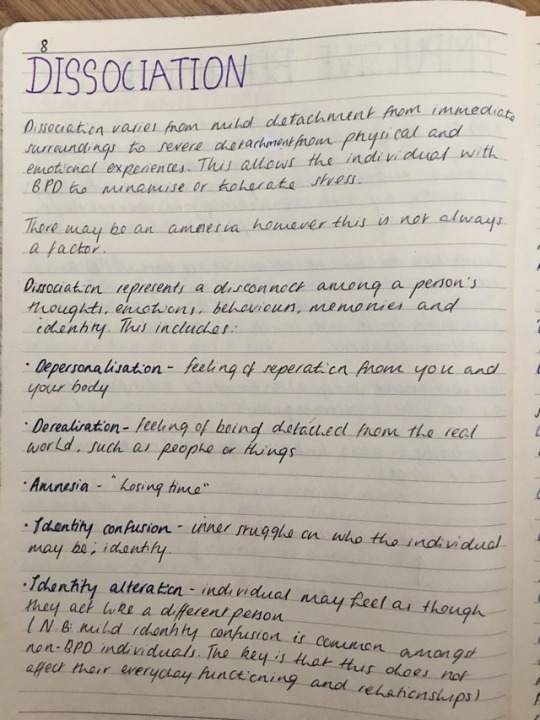 8
DISSOCIATION
Dissociation varies from mild detachment from immediate
surroundings to severe detachment from physical and
emotional experiences. This allows the individual with
BPD to minamise or tolerate stress.
There may be an amnesia however this is not always
a factor.
Dissociation represents a disconnect among a person's
thoughts, emotions, behaviours, memories and
identity. This includes:
· Depersonalisation - feeling of seperation from you and
your body
· Derealisation - feeling of being detached from the real
world, such as people or things
· Amnesia - "Losing time"
· Identity confusion - inner struggle on who the individual
may be; identity.
· Identity alteration - individual may feel as though
they act like a different person
(N.B: mild identity confusion is common amongst
non-BPD individuals. The key is that this does not
affect their everyday functioning and relationships)